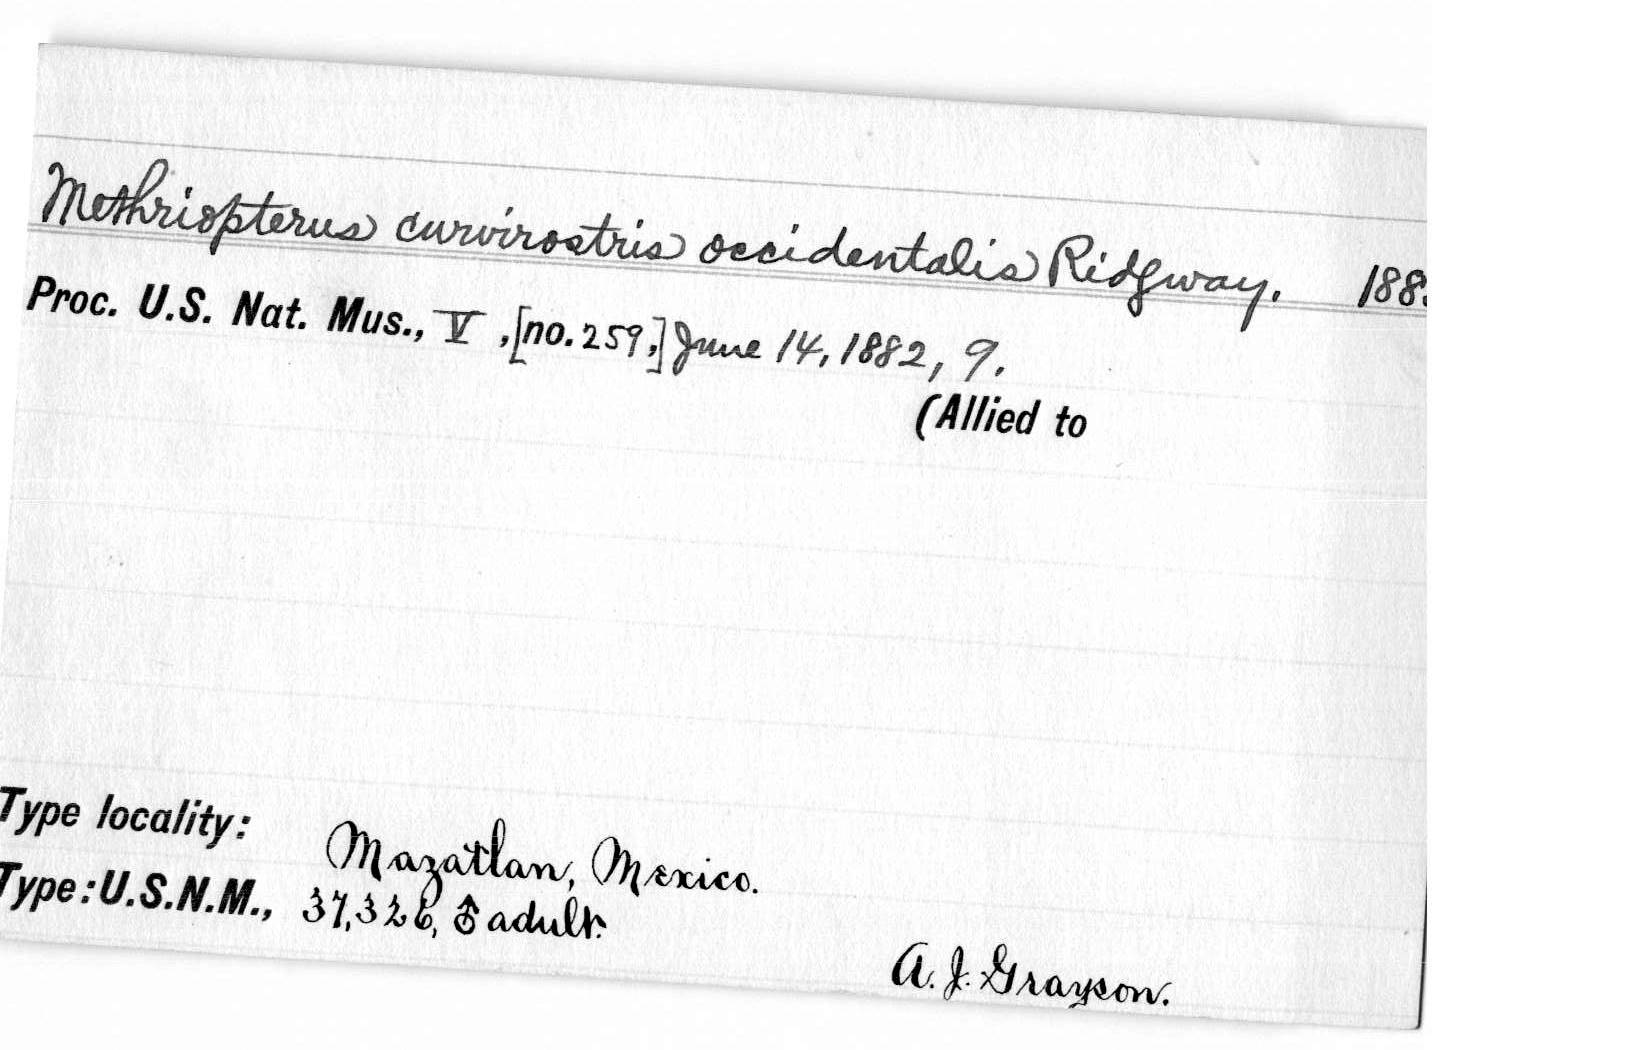 Methriopterus curvirostris occidentalis Ridgway. 188
Proc. U.S. Nat. Mus., V, [no. 259,] June 14, 1882, 9.
(Allied to
Type locality:
Mazatlan, Mexico.
Type: U.S.N.M., 37,326, ♂ adult.
A. J. Grayson.